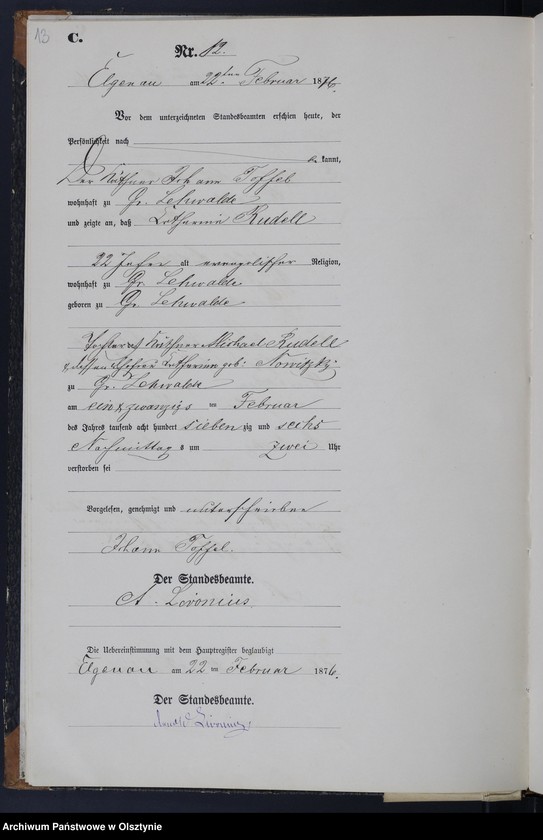 13
C.
Nr. 12.
Elgenau am 22ten Februar 1876.
Vor dem unterzeichneten Standesbeamten erschien heute, der
Persönlichkeit nach
be kannt,
Der Käthner Johann Toffel
wohnhaft zu Gr. Lehwalde
und zeigte an, daß Catharina Rudell
22 Jahre alt evangelischer Religion,
wohnhaft zu Gr. Lehwalde
geboren zu Gr. Lehwalde
Tochter des Käthner Michael Rudell
& dessen Ehefrau Catharina geb: Nowitzki
zu Gr. Lehwalde
am ein & zwanzigs ten Februar
des Jahres tausend acht hundert sieben zig und sechs
Nachmittag s um zwei Uhr
verstorben sei
Vorgelesen, genehmigt und unterschrieben
Johann Toffel.
Der Standesbeamte.
A. Livonius.
Die Uebereinstimmung mit dem Hauptregister beglaubigt
Elgenau am 22 ten Februar 1876.
Der Standesbeamte.
Livonius
Archiwum Państwowe w Olsztynie